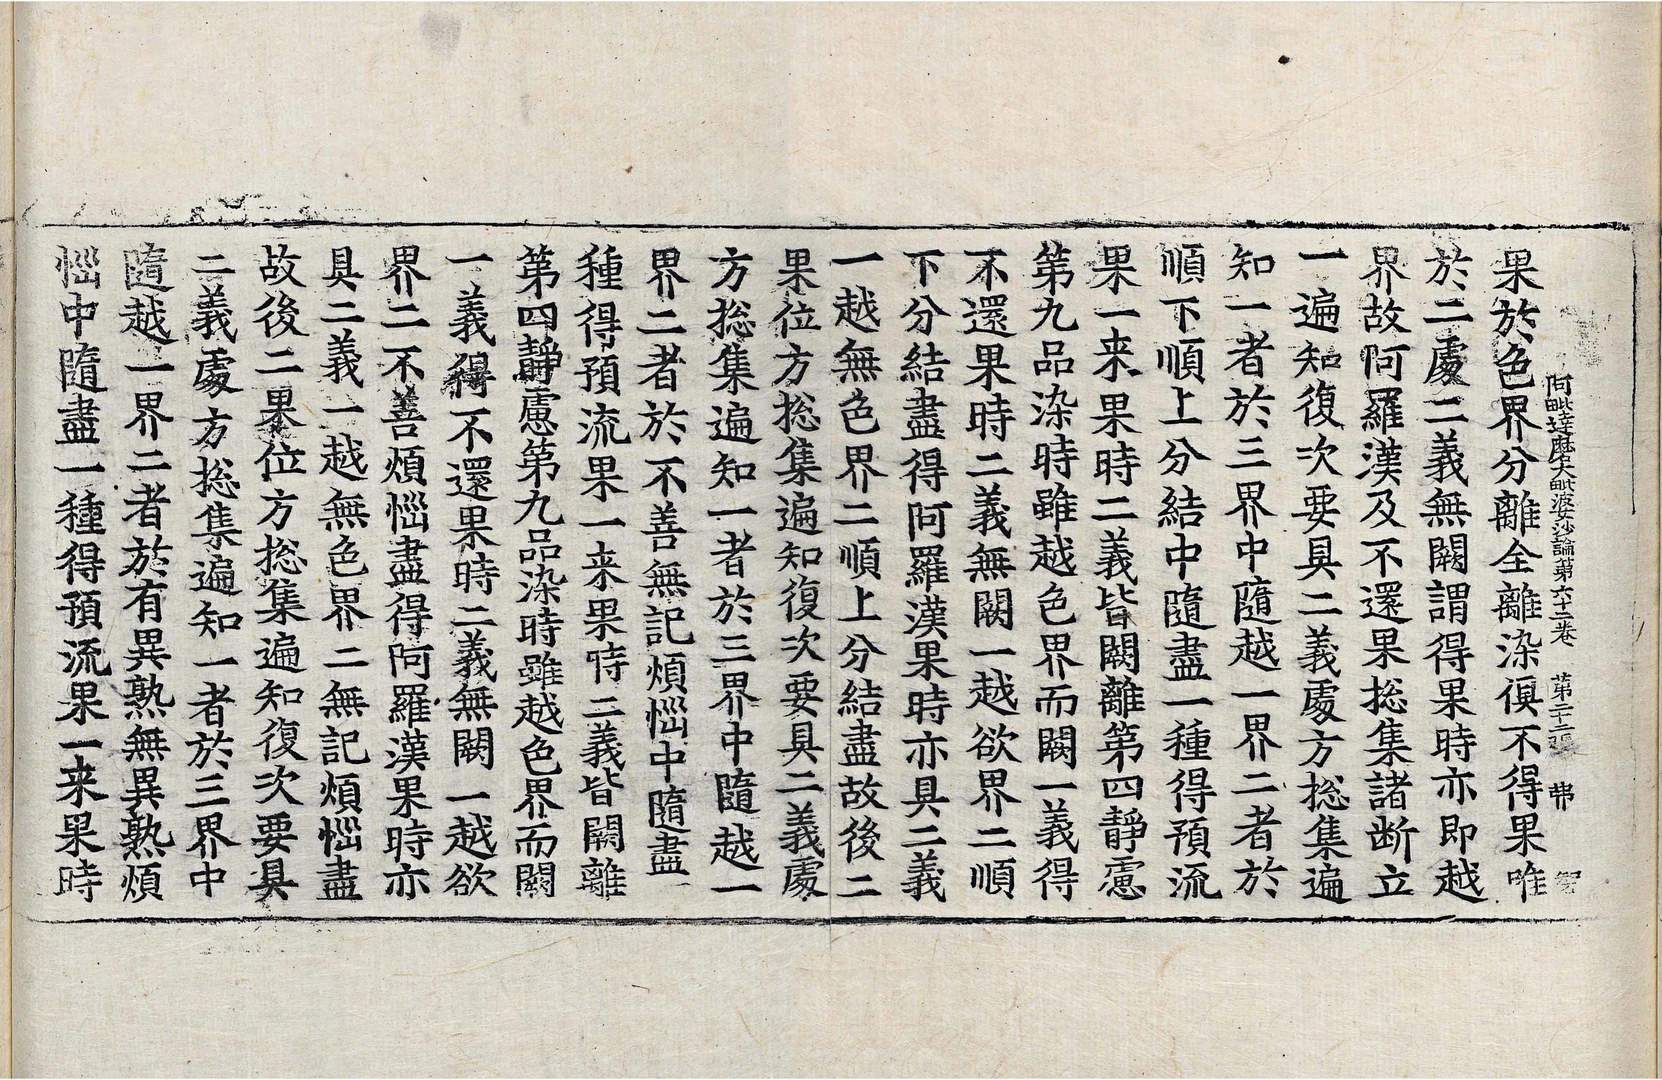 阿毗達磨大毗婆沙論第六十二卷 第二十二張 弗
果於色界分離全離染俱不得果唯
於二處二義無闕謂得果時亦即越
界故阿羅漢及不還果揔集諸断立
一遍知復次要具二義處方揔集遍
知一者於三界中隨越一界二者於
順下順上分結中隨盡一種得預流
果一来果時二義皆闕離第四靜慮
第九品染時雖越色界而闕一義得
不還果時二義無闕一越欲界二順
下分結盡得阿羅漢果時亦具二義
一越無色界二順上分結盡故後二
果位方揔集遍知復次要具二義處
方揔集遍知一者於三界中隨越一
界二者於不善無記煩惱中隨盡一
種得預流果一来果時二義皆闕離
第四靜慮第九品染時雖越色界而闕
一義得不還果時二義無闕一越欲
界二不善煩惱盡得阿羅漢果時亦
具二義一越無色界二無記煩惱盡
故後二果位方揔集遍知復次要具
二義處方揔集遍知一者於三界中
隨越一界二者於有異熟無異熟煩
惱中隨盡一種得預流果一来果時